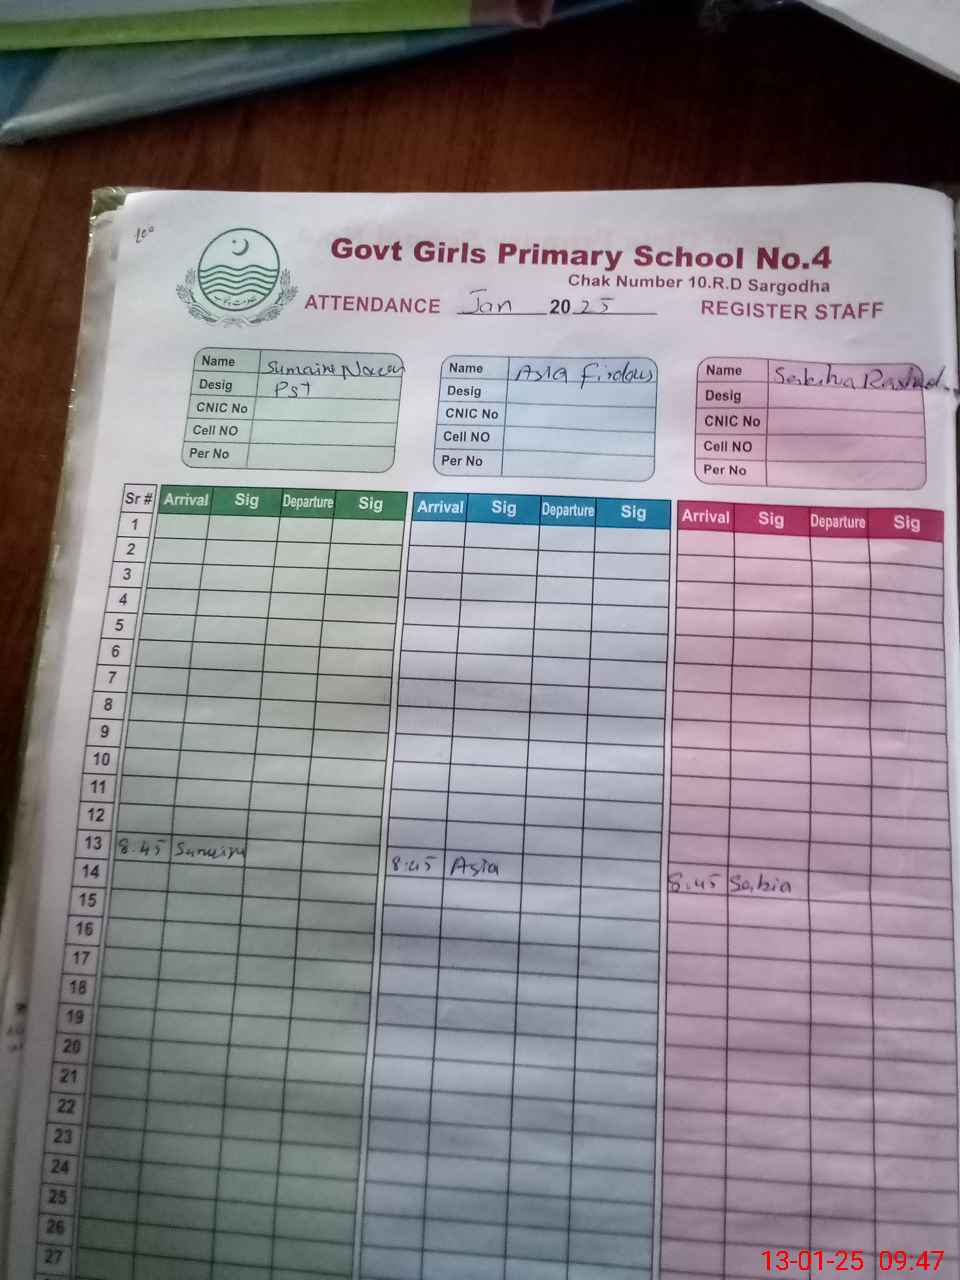 Govt Girls Primary School No.4
Chak Number 10.R.D Sargodha
ATTENDANCE Jan 2025 REGISTER STAFF
Name Sumaira
Desig PST
CNIC No
Cell NO
Per No
Name Asia Firdous
Desig
CNIC No
Cell NO
Per No
Name Rashid
Desig
CNIC No
Cell NO
Per No
Sr # Arrival Sig Departure Sig Arrival Sig Departure Sig Arrival Sig Departure Sig
1
2
3
4
5
6
7
8
9
10
11
12
13 8:45 8:45 Asia 8:45 Sabia
14
15
16
17
18
19
20
21
22
23
24
25
26
27
13-01-25 09:47